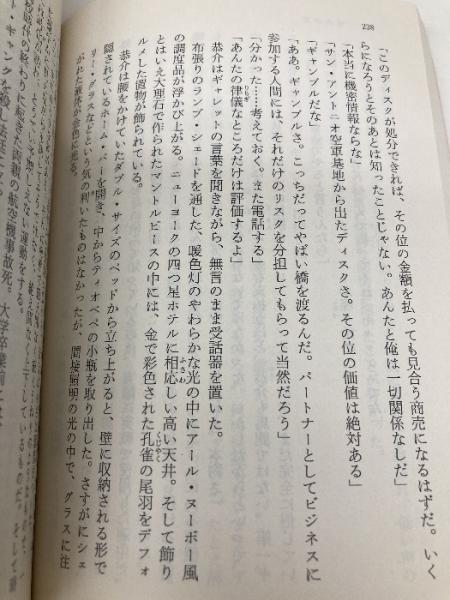 228
「このディスクが処分できれば、その位の金額を払っても見合う商売になるはずだ。いく
らになろうとそのあとは知ったことじゃない。あんたと俺は一切関係なしだ」
「本当に機密情報ならな」
「サン・アントニオ空軍基地から出たディスクさ。その位の価値は絶対ある」
「ギャンブルだな」
「ああ。ギャンブルさ。こっちだってやばい橋を渡るんだ。パートナーとしてビジネスに
参加する人間には、それだけのリスクを分担してもらって当然だろう」
「分かった……考えておく。また電話する」
「あんたの律儀なところだけは評価するよ」
恭介はギャレットの言葉を聞きながら、無言のまま受話器を置いた。
布張りのランプ・シェードを通した、暖色灯のやわらかな光の中にアール・ヌーボー風
の調度品が浮かび上がる。ニューヨークの四つ星ホテルに相応しい高い天井。そして飾り
とはいえ大理石で作られたマントルピースの中には、金で彩色された孔雀の尾羽をデフォ
ルメした置物が飾られている。
恭介は腰をかけていたダブル・サイズのベッドから立ち上がると、壁に収納される形で
隠されているホーム・バーを開き、中からティオペペの小瓶を取り出した。さすがにシェ
リー・グラスなどという気の利いたものはなかったが、間接照明の光の中で、グラスに注
がれた液体が金色に光る。
えない運動をする。
時代の終わりに起きた両親の航空機事故死。大学卒業
ギャングを殺し